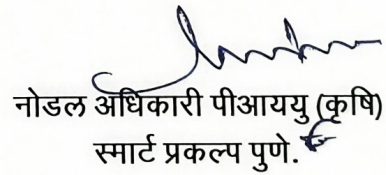 नोडल अधिकारी पीआययु (कृषि)
स्मार्ट प्रकल्प पुणे.